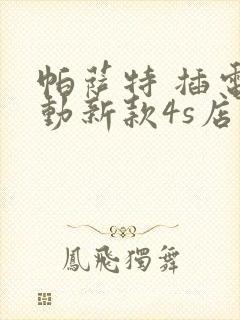 帕萨特 插電
動新款4s店
鳳飛獨舞